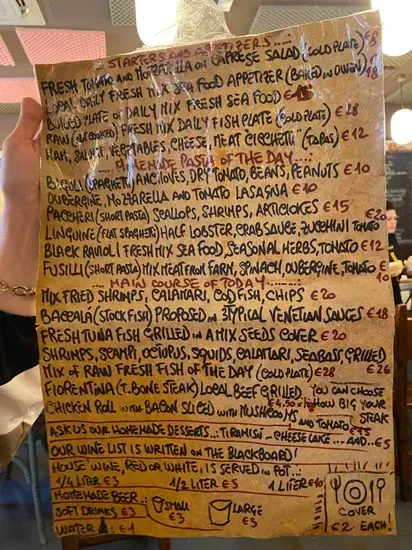 STARTERS AND APPETIZERS...:
FRESH TOMATO AND MOZZARELLA ON CAPRESE SALAD (COLD PLATE) €8
LOCAL DAILY FRESH MIX SEA FOOD APPETIZER (BAKED IN OWEN) €18
BOILED PLATE OF DAILY MIX FRESH SEA FOOD €15
RAW (NOT COOKED) FRESH MIX DAILY FISH PLATE (COLD PLATE) €28
HAM, SALAMI, VEGETABLES, CHEESE, MEAT CICCHETTI (TAPAS) €12
...: HOMEMADE PASTA OF THE DAY....:
BIGOLI (SPAGHETTI) ANCHOVIES, DRY TOMATO, BEANS, PEANUTS €10
OUBERGINE, MOZZARELLA AND TOMATO LASAGNA €10
PACCHERI (SHORT PASTA) SCALLOPS, SHRIMPS, ARTICIOKES €15
LINGUINE (FLAT SPAGHETTI) HALF LOBSTER, CRAB SAUCE, ZUCCHINI TOMATO €20
BLACK RAVIOLI FRESH MIX SEA FOOD, SEASONAL HERBS, TOMATO €12
FUSILLI (SHORT PASTA) MIX MEAT FROM FARM, SPINACH, OUBERGINE, TOMATO €10
...: MAIN COURSE OF TODAY...:
MIX FRIED SHRIMPS, CALAMARI, COD FISH, CHIPS €20
BACCALA (STOCK FISH) PROPOSED IN 3 TYPICAL VENETIAN SAUCES €18
FRESH TUNA FISH GRILLED IN A MIX SEEDS COVER €20
SHRIMPS, SCAMPI, OCTOPUS, SQUIDS, CALAMARI, SEABASS GRILLED €26
MIX OF RAW FRESH FISH OF THE DAY (COLD PLATE) €28
FIORENTINA (T.BONE STEAK) LOCAL BEEF GRILLED YOU CAN CHOOSE
€4,50 HOW BIG YOUR STEAK
CHICKEN ROLL WITH BACON SLICED WITH MUSHROOMS AND TOMATO €15
ASK US OUR HOMEMADE DESSERTS..: TIRAMISÙ - CHEESE CAKE ... AND.. €5
OUR WINE LIST IS WRITTEN ON THE BLACKBOARD!
HOUSE WINE, RED OR WHITE, IS SERVED IN POT..:
1/4 LITER €3 1/2 LITER €5 1 LITER €10
HOMEMADE BEER...: SMALL €3 LARGE €5
SOFT DRINKS €3
WATER €1
COVER
€2 EACH!